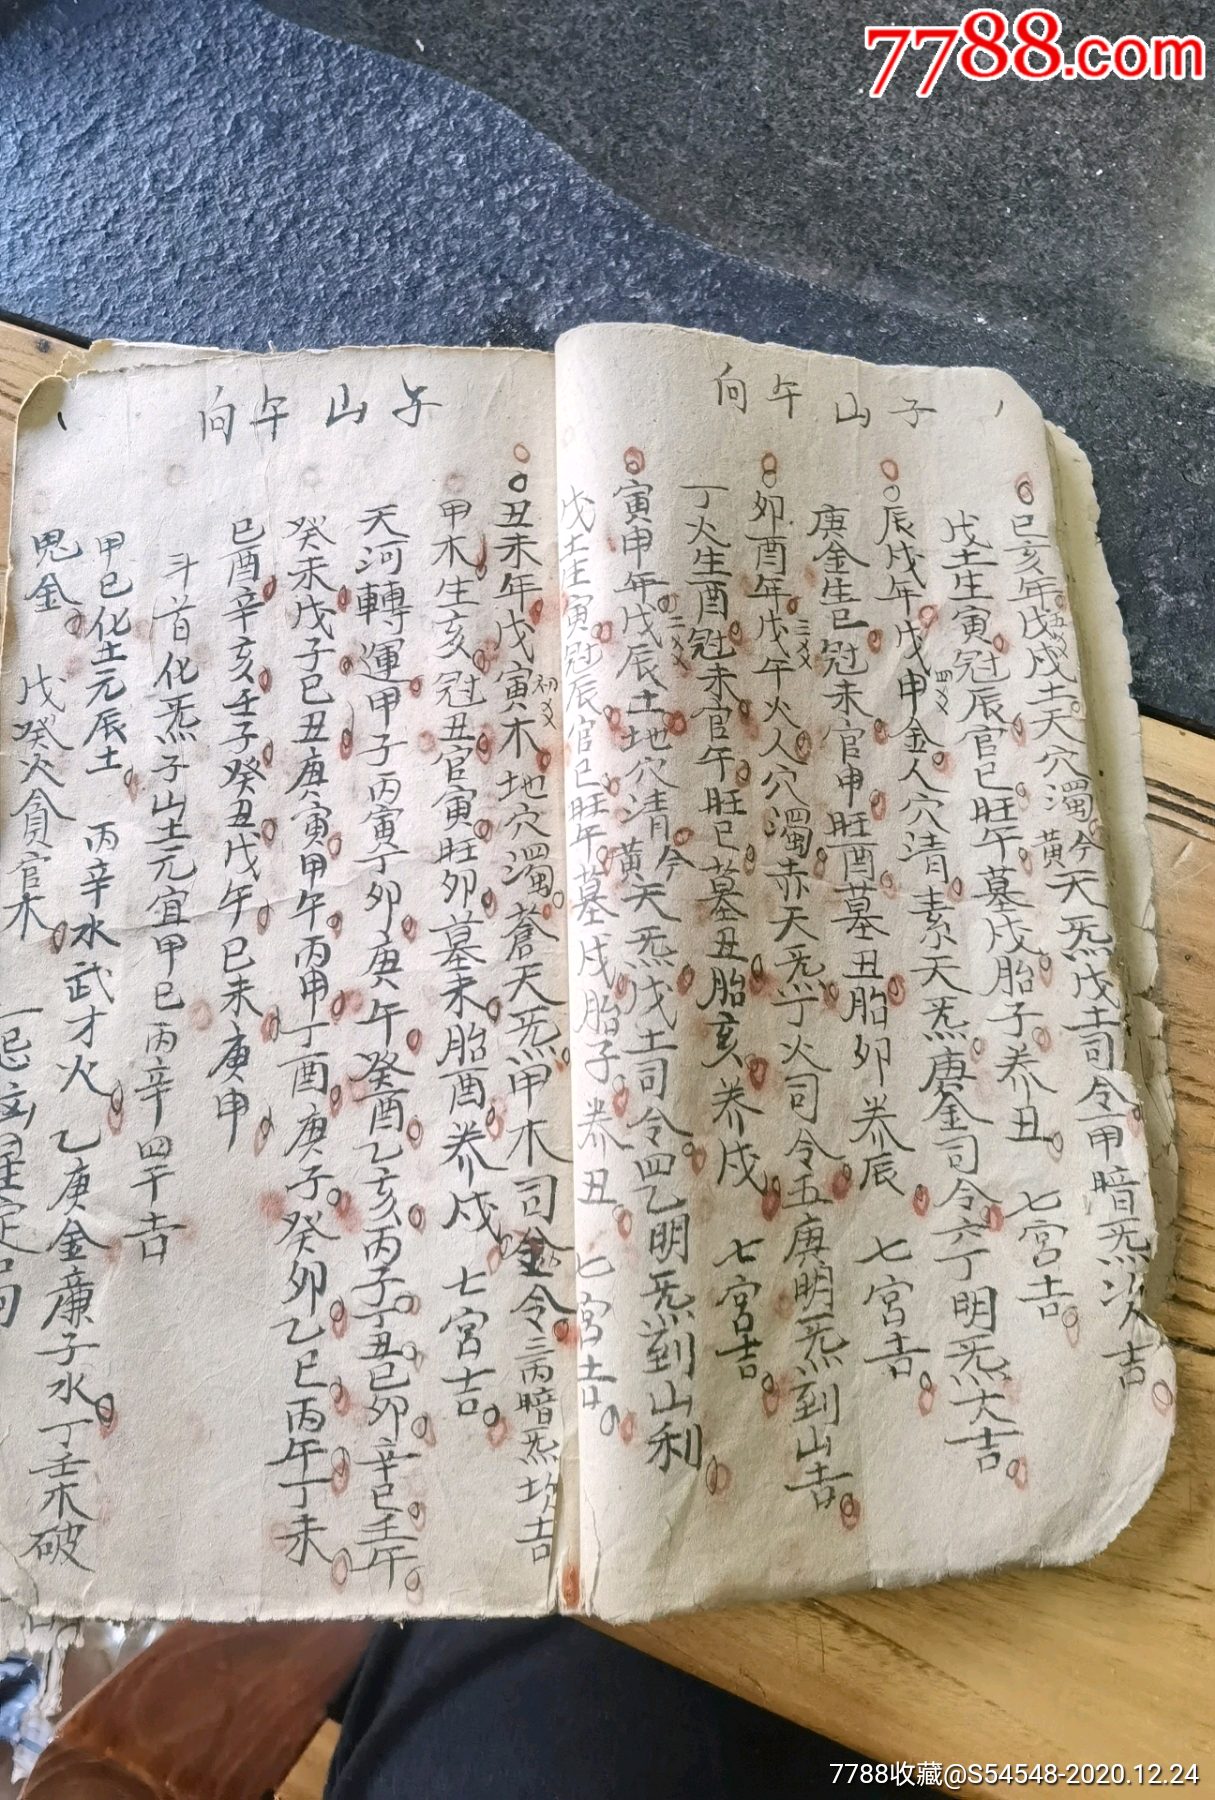 7788.com
子山午向
巳亥年戊戌土天穴濁黃天炁戊土司令一甲暗炁次吉
五乂
今
戊土生寅冠辰官巳旺午墓戌胎子养丑 七宮吉
辰戌年戊申金人穴清素天炁庚金司令六丁明炁大吉
四乂
庚金生巳冠未官申旺酉墓丑胎卯养辰 七宮吉
卯酉年戊午火人穴濁赤天炁丁火司令五庚明炁到山吉
三乂
丁火生酉冠未官午旺巳墓丑胎亥养戌 七宮吉
寅申年戊辰土地穴清黃天炁戊土司令四乙明炁到山利
二乂
今
戊土生寅冠辰官巳旺午墓戌胎子养丑 七宮吉
子山午向
丑未年戊寅木地穴濁蒼天炁甲木司金令三丙暗炁坎吉
初乂
甲木生亥冠丑官寅旺卯墓未胎酉养戌 七宮吉
天河轉運甲子丙寅丁卯庚午癸酉乙亥丙子丁丑巳卯辛巳壬午
癸未戊子巳丑庚寅甲午丙申丁酉庚子癸卯乙巳丙午丁未
巳酉辛亥壬子癸丑戊午巳未庚申
斗首化炁子山土元宜甲巳丙辛四干吉
甲巳化土元辰土 丙辛水武才火 乙庚金亷子水 丁壬木破
鬼金 戊癸火貪官木
7788收藏@S54548-2020.12.24